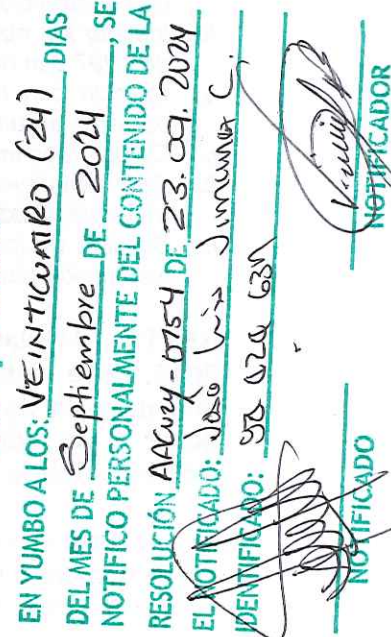 EN YUMBO A LOS: VEINTICUATRO (24) DIAS
DEL MES DE Septiembre DE 2024, SE
NOTIFICO PERSONALMENTE DEL CONTENIDO DE LA
RESOLUCIÓN DE 23.09.2024
EL NOTIFICADO: Jose Luis C.
IDENTIFICADO:
NOTIFICADO NOTIFICADOR